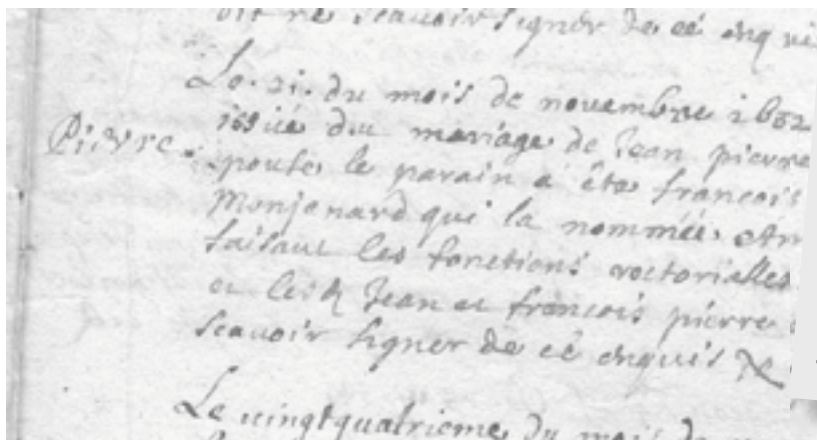 dit ne scauoir signer de ce enqui
Le. 21. du mois de nouembre 1682
Pierre. issüe du mariage de Jean pierre
pouse le parain a éte francois
Monjenard qui la nommée An
faisant les fonctions rectorialles
et Jean et francois pierre
scauoir signer de cé enquis
Le vingtquatrieme du mois de